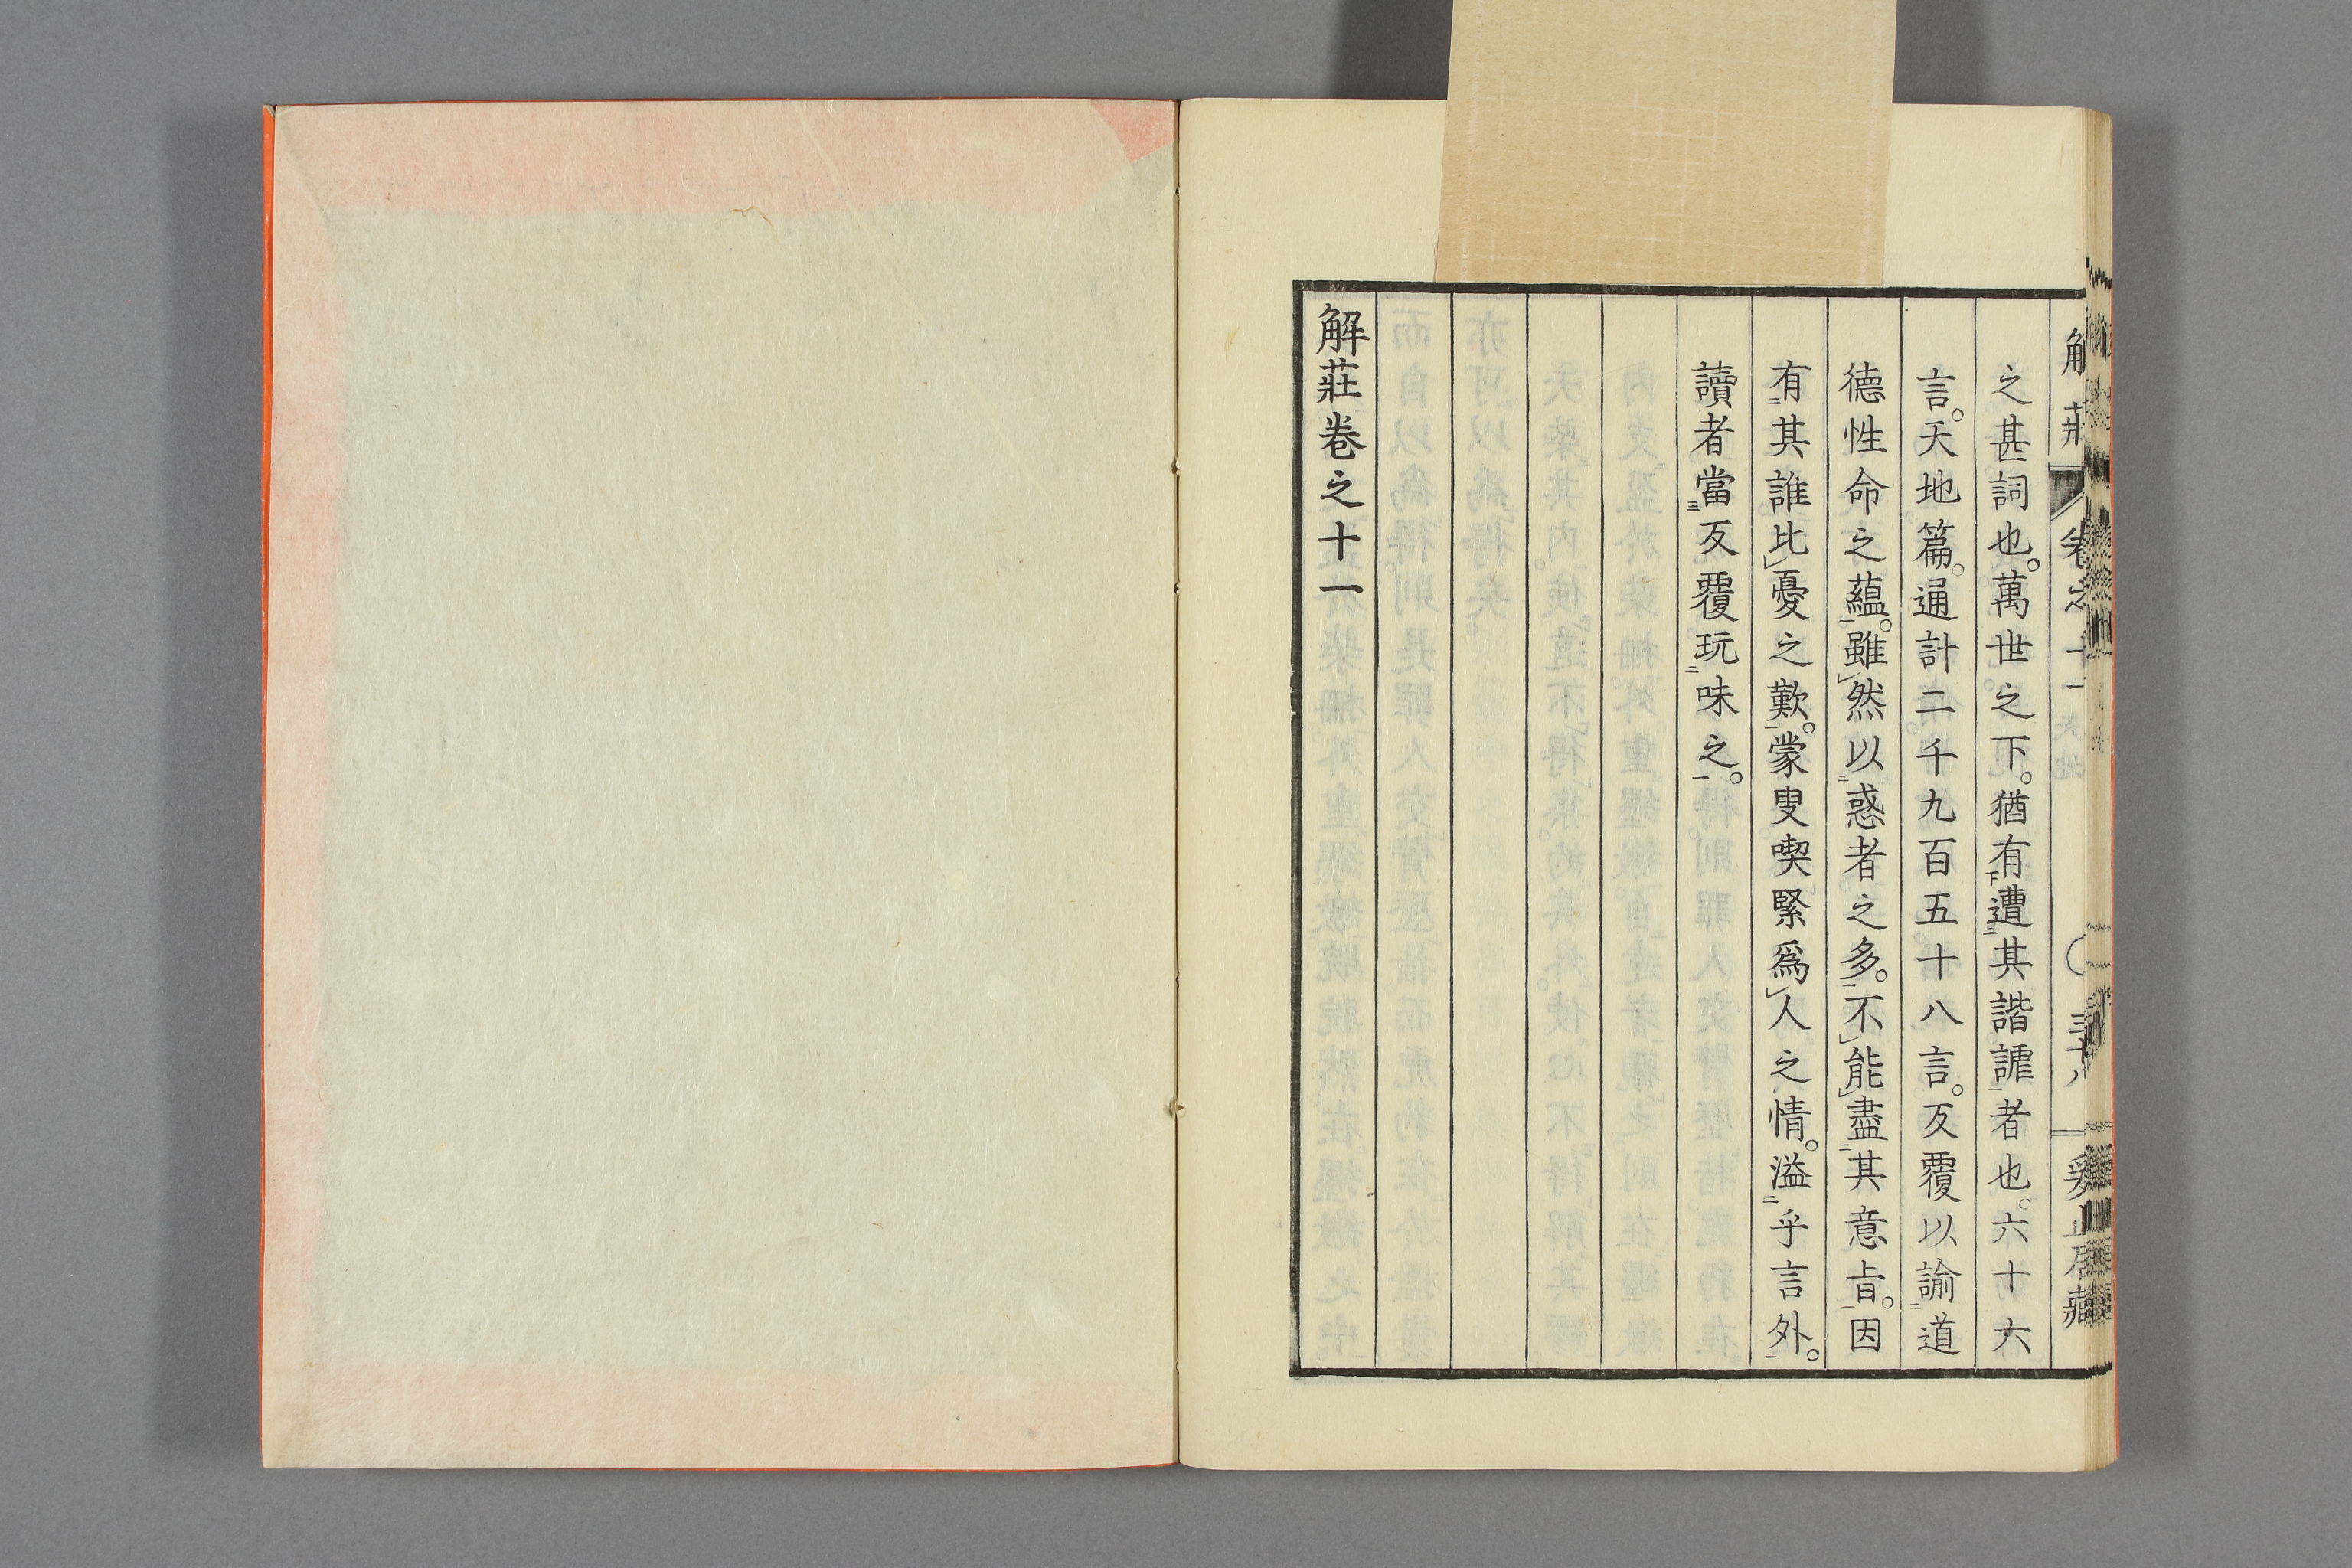 之甚詞也。萬世之下。猶有遭其諧謔者也。六十六
言。天地篇。通計二千九百五十八言。反覆以諭道
德性命之蘊。雖然以惑者之多。不能盡其意旨。因
有其誰比憂之歎。蒙叟喫緊爲人之情。溢乎言外。
讀者當反覆玩味之。
解莊卷之十一